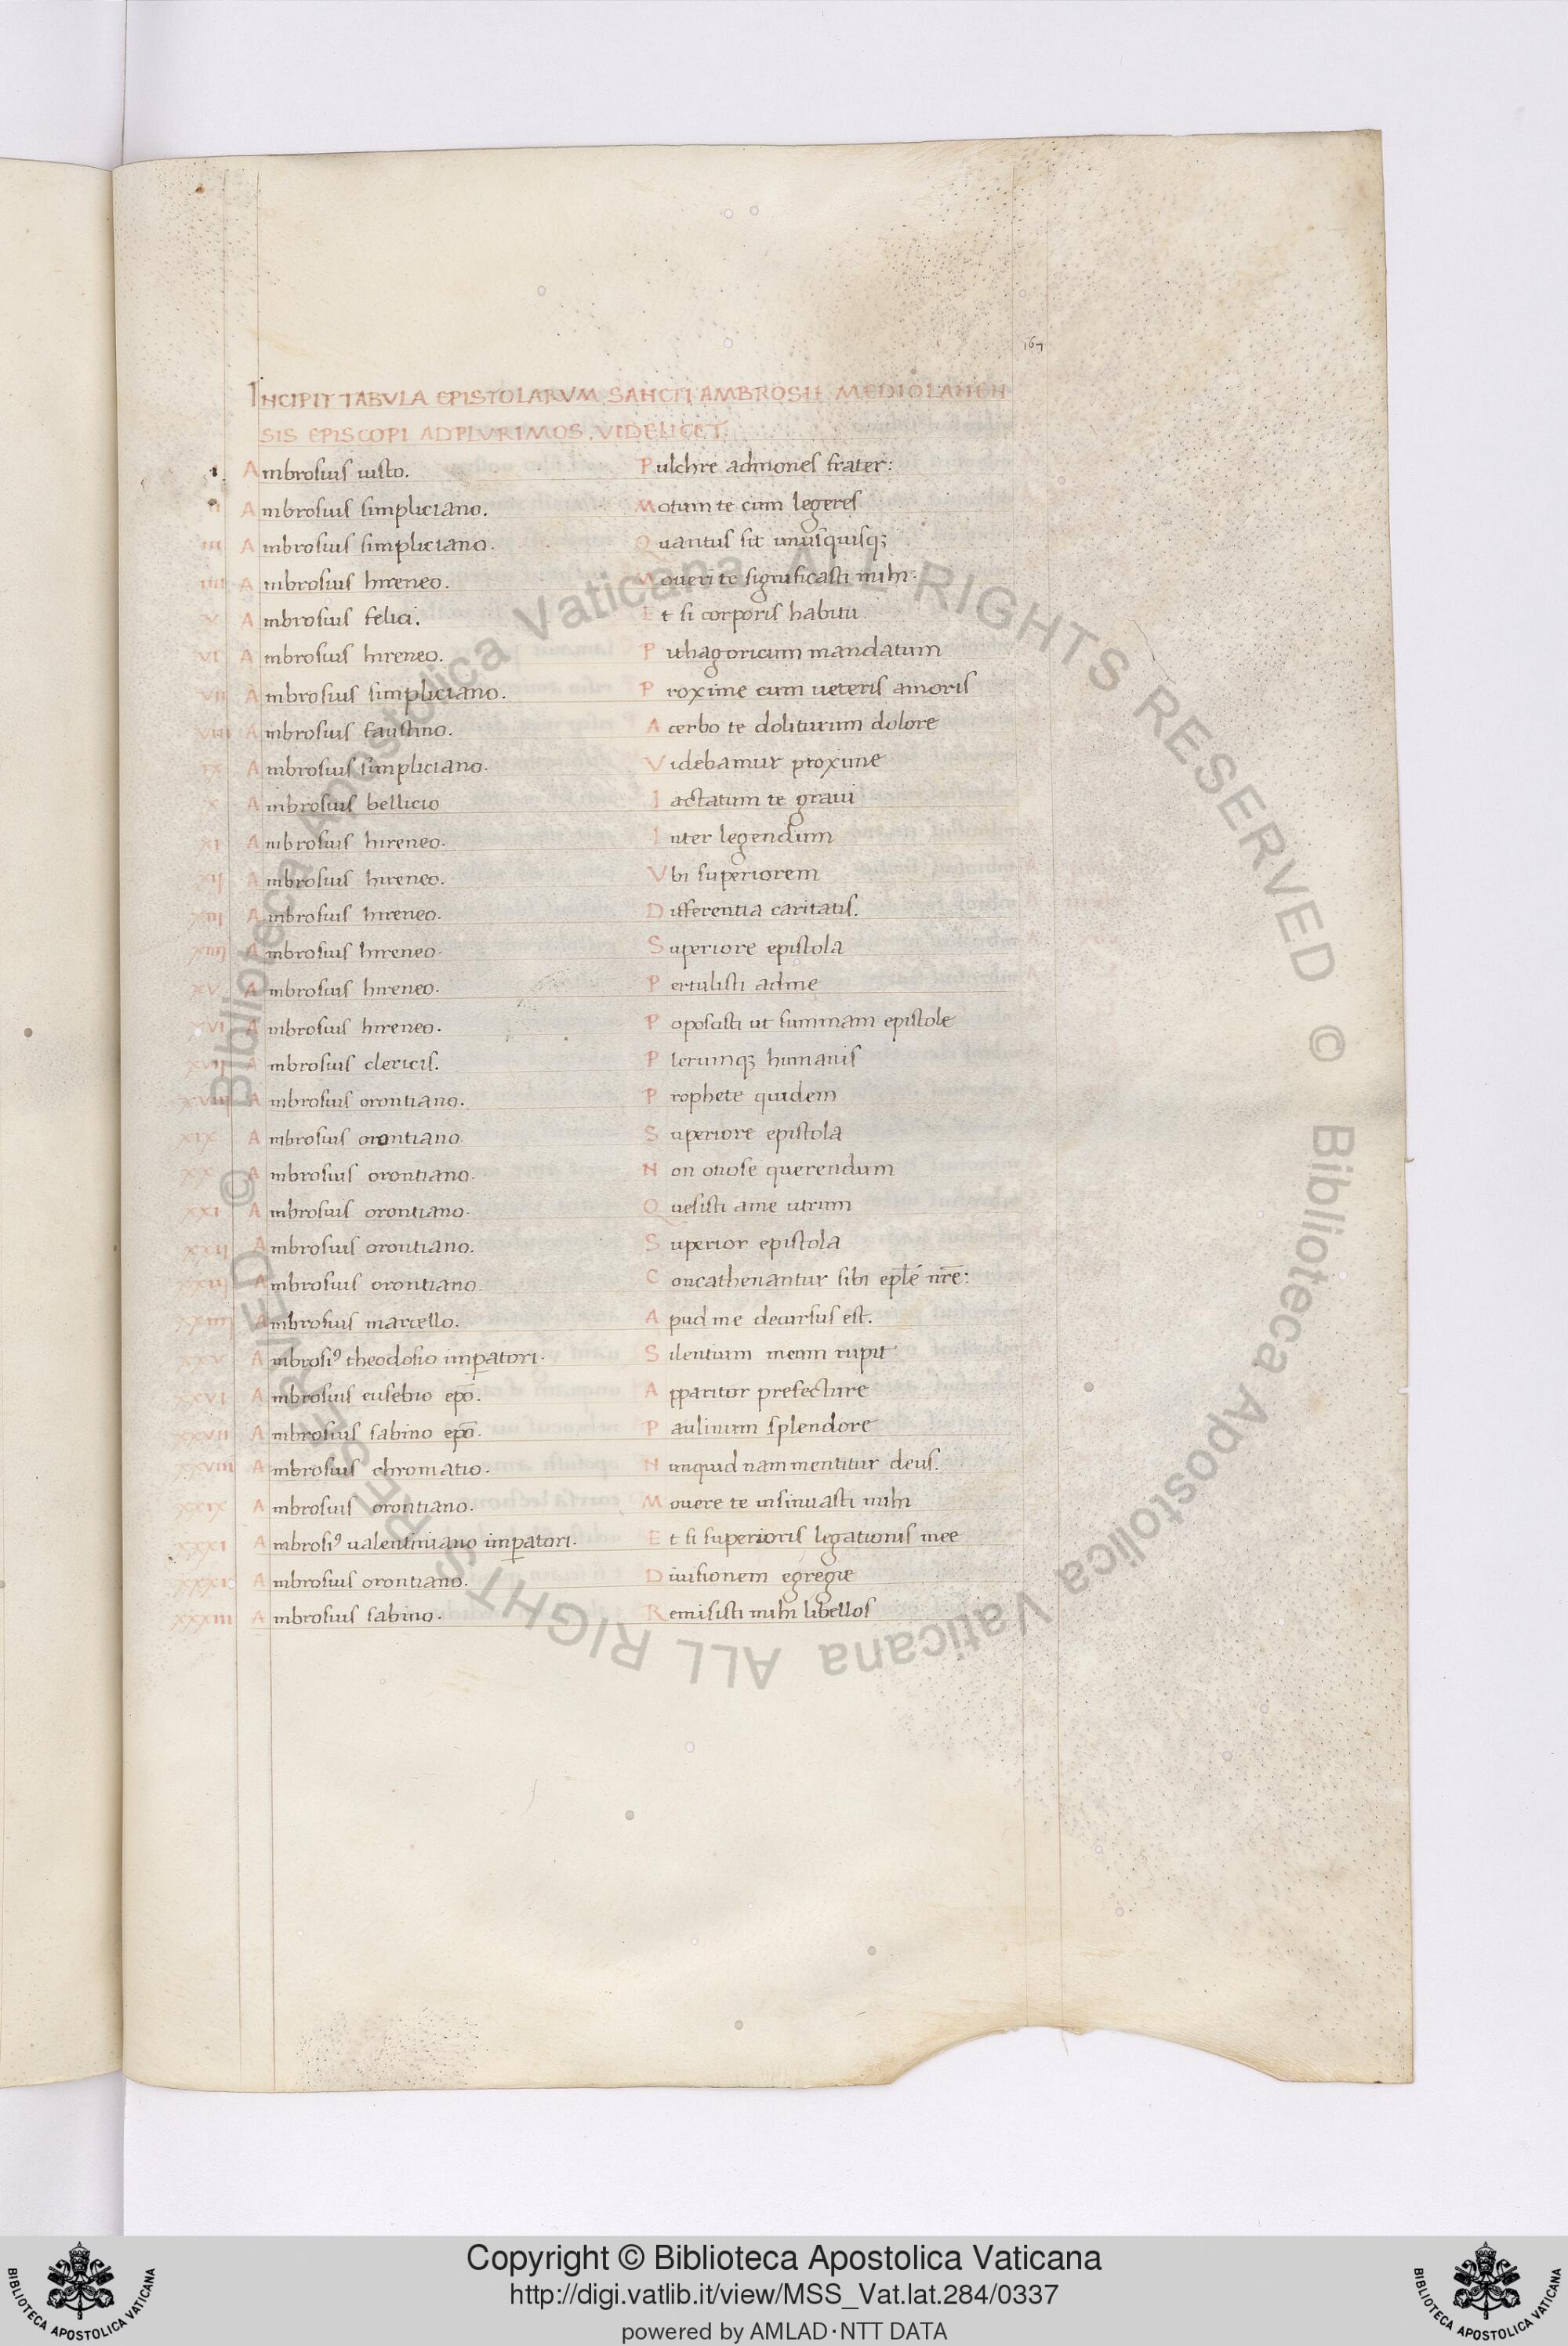 167
INCIPIT TABVLA EPISTOLARVM SANCTI AMBROSII MEDIOLANEN
SIS EPISCOPI AD PLVRIMOS. VIDELICET.
I. Ambrosius iusto. Pulchre admones frater:
II Ambrosius simpliciano. Motum te cum legeres
III Ambrosius simpliciano. Quantus sit unusquisq;
IIII Ambrosius hireneo. Moueri te significasti mihi:
V Ambrosius felici. Et si corporis habitu
VI Ambrosius hireneo. Pithagoricum mandatum
VII Ambrosius simpliciano. Proxime cum ueteris amoris
VIII Ambrosius faustino. Acerbo te doliturum dolore
IX Ambrosius simpliciano. Videbamur proxime
X Ambrosius bellicio Iactatum te graui
XI Ambrosius hireneo. Inter legendum
XII Ambrosius hireneo. Vbi superiorem
XIII Ambrosius hireneo. Differentia caritatis.
XIIII Ambrosius hireneo. Superiore epistola
XV Ambrosius hireneo. Pertulisti adme
XVI Ambrosius hireneo. Poposcisti ut summam epistole
XVII Ambrosius clericis. Plerumq; humanis
XVIII Ambrosius orontiano. Prophete quidem
XIX Ambrosius orontiano. Superiore epistola
XX Ambrosius orontiano. Non otiose querendum
XXI Ambrosius orontiano. Quesisti ame utrum
XXII Ambrosius orontiano. Superior epistola
XXIII Ambrosius orontiano. Concathenantur sibi eple nre:
XXIIII Ambrosius marcello. Apud me decursus est.
XXV Ambrosi⁹ theodosio impatori. Silentium meum rupit
XXVI Ambrosius eusebio epo. Apparitor prefecture
XXVII Ambrosius sabino epo. Paulinum splendore
XXVIII Ambrosius chromatio. Nunquid nam mentitur deus.
XXIX Ambrosius orontiano. Mouere te insinuasti mihi
XXXI Ambrosi⁹ ualentiniano impatori. Et si superioris legationis mee
Ambrosius orontiano. Diuisionem egregie
XXXIII Ambrosius sabino. Remisisti mihi libellos
© Biblioteca Apostolica Vaticana ALL RIGHTS RESERVED © Biblioteca Apostolica Vaticana ALL RIGHTS RESERVED
Copyright © Biblioteca Apostolica Vaticana
http://digi.vatlib.it/view/MSS_Vat.lat.284/0337
powered by AMLAD·NTT DATA
BIBLIOTECA APOSTOLICA VATICANA
BIBLIOTECA APOSTOLICA VATICANA